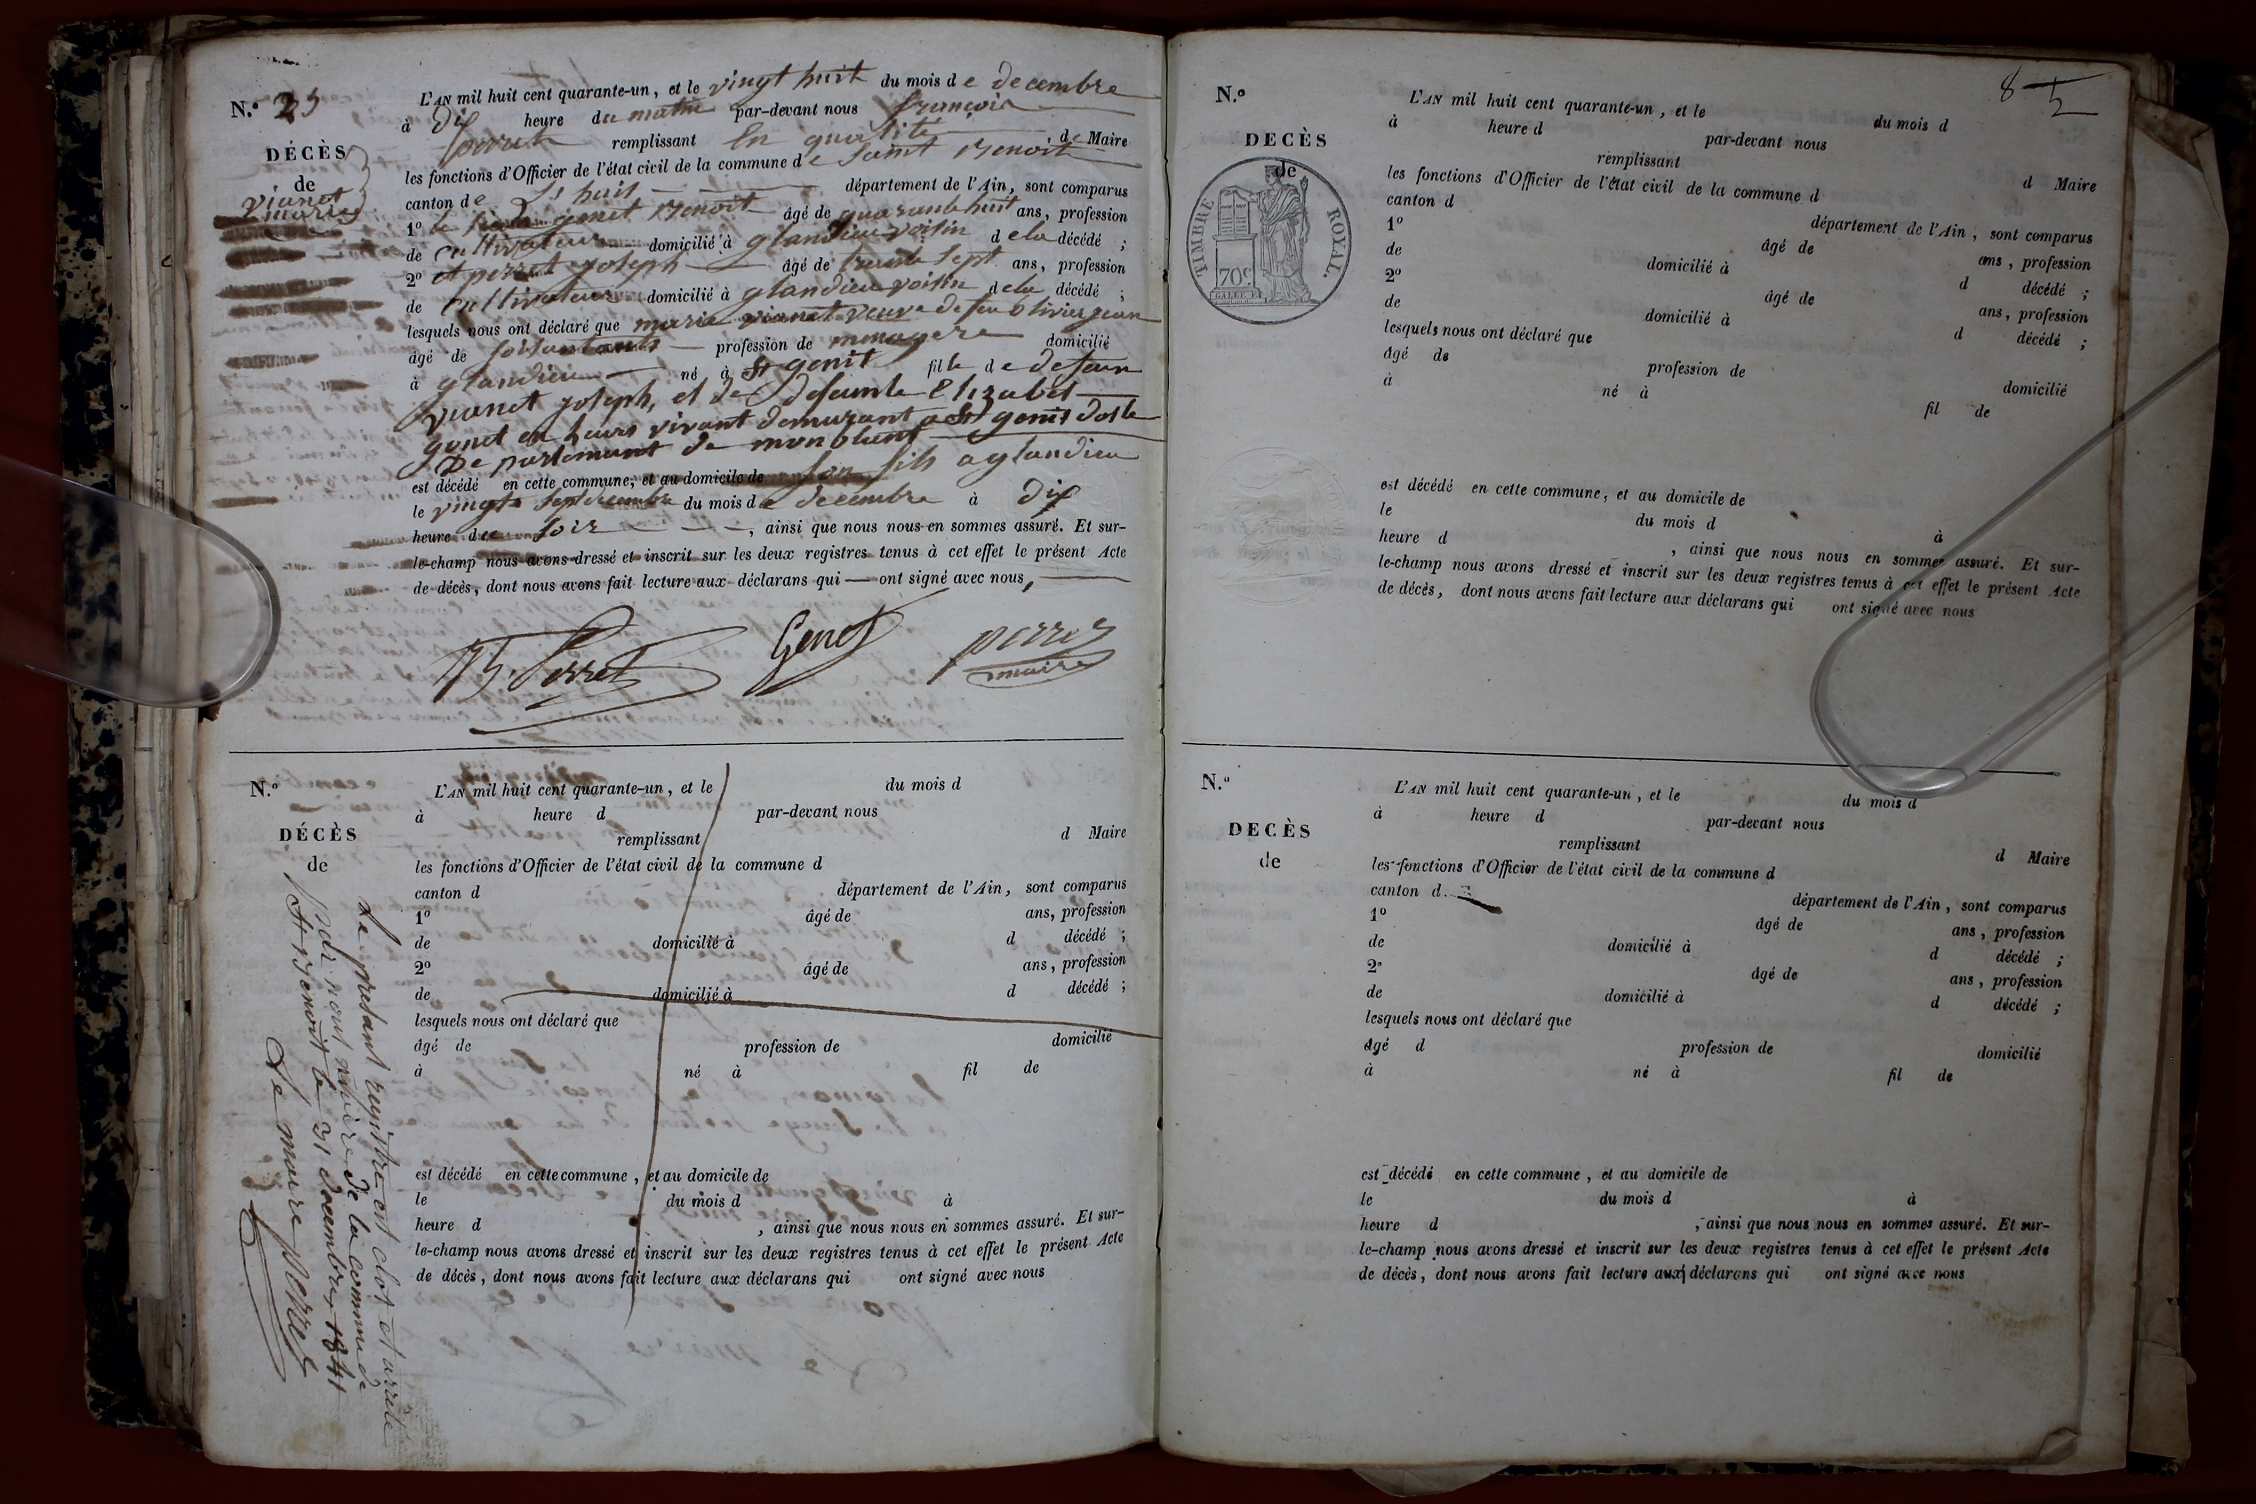 N.° 25
DÉCÈS
de
vianet
marie
L'AN mil huit cent quarante-un, et le vingt huit du mois de decembre
à dix heure du matin par-devant nous françois
perret remplissant En qualité de Maire
les fonctions d'Officier de l'état civil de la commune de Saint Benoit
canton de L'huis département de l'Ain, sont comparus
1° le sieur genet Benoit âgé de quarante huit ans, profession
de cultivateur domicilié à glandieu voisin de la décédé ;
2° et perret joseph âgé de trente sept ans, profession
de cultivateur domicilié à glandieu voisin de la décédé ;
lesquels nous ont déclaré que marie vianet veuve de feu Olivier jean
âgé de soissante profession de menagere domicilié
à glandieu né à St genit fille de defeun
vianet joseph, et de defeunte Elizabet
gunet en leurs vivant demurant a St genit doste
De partement de monblant
est décédé en cette commune, et au domicile de son fils a glandieu
le vingt sept decembre du mois de decembre à dix
heure du soir, ainsi que nous nous en sommes assuré. Et sur-
le-champ nous avons dressé et inscrit sur les deux registres tenus à cet effet le présent Acte
de décès, dont nous avons fait lecture aux déclarans qui — ont signé avec nous,
Perret Genet perret
maire
N.°
DÉCÈS
de
L'AN mil huit cent quarante-un, et le du mois d
à heure d par-devant nous
remplissant d Maire
les fonctions d'Officier de l'état civil de la commune d
canton d département de l'Ain, sont comparus
1° âgé de ans, profession
de domicilié à d décédé ;
2° âgé de ans, profession
de domicilié à d décédé ;
lesquels nous ont déclaré que
âgé de profession de domicilié
à né à fil de
est décédé en cette commune, et au domicile de
le du mois d à
heure d , ainsi que nous nous en sommes assuré. Et sur-
le-champ nous avons dressé et inscrit sur les deux registres tenus à cet effet le présent Acte
de décès, dont nous avons fait lecture aux déclarans qui ont signé avec nous
Le presant registre est clot et arrêté
Par nous maire de la commune de
St Benoit le 31 decembre 1841
Le maire perret
8
N.°
DECÈS
de
TIMBRE ROYAL.
70c.
L'AN mil huit cent quarante-un, et le du mois d
à heure d par-devant nous
remplissant d Maire
les fonctions d'Officier de l'état civil de la commune d
canton d département de l'Ain, sont comparus
1° âgé de ans, profession
de domicilié à d décédé ;
2° âgé de ans, profession
de domicilié à d décédé ;
lesquels nous ont déclaré que
âgé de profession de domicilié
à né à fil de
est décédé en cette commune, et au domicile de
le du mois d à
heure d , ainsi que nous nous en sommes assuré. Et sur-
le-champ nous avons dressé et inscrit sur les deux registres tenus à cet effet le présent Acte
de décès, dont nous avons fait lecture aux déclarans qui ont signé avec nous
N.°
DECÈS
de
L'AN mil huit cent quarante-un, et le du mois d
à heure d par-devant nous
remplissant d Maire
les fonctions d'Officier de l'état civil de la commune d
canton d département de l'Ain, sont comparus
1° âgé de ans, profession
de domicilié à d décédé ;
2° âgé de ans, profession
de domicilié à d décédé ;
lesquels nous ont déclaré que
âgé d profession de domicilié
à né à fil de
est décédé en cette commune, et au domicile de
le du mois d à
heure d , ainsi que nous nous en sommes assuré. Et sur-
le-champ nous avons dressé et inscrit sur les deux registres tenus à cet effet le présent Acte
de décès, dont nous avons fait lecture aux déclarans qui ont signé avec nous